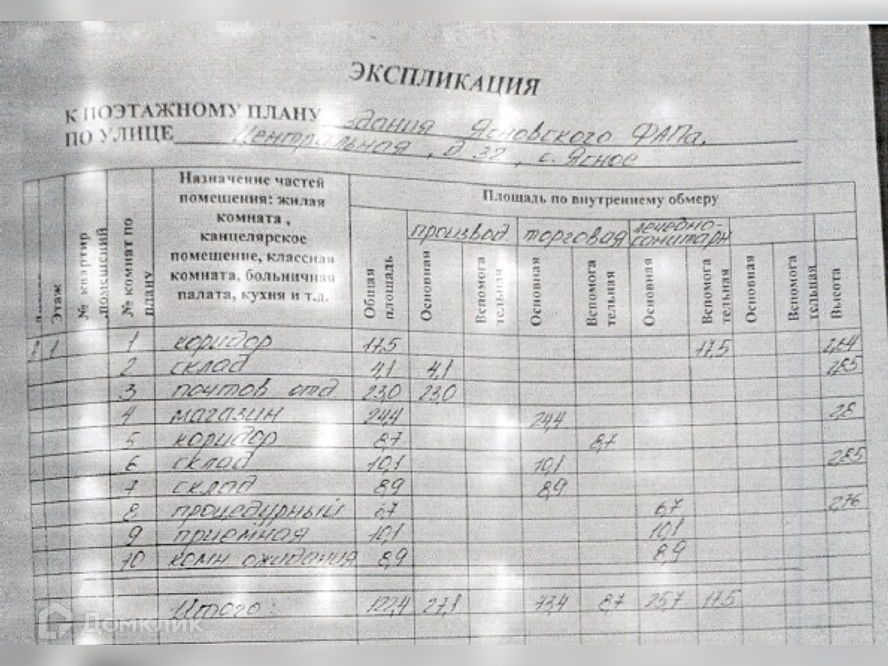 ЭКСПЛИКАЦИЯ
К ПОЭТАЖНОМУ ПЛАНУ здания Ясновского ФАПа,
ПО УЛИЦЕ Центральная, д 32, с. Ясное
Этаж
№ квартир помещений
№ комнат по плану
Назначение частей помещения: жилая комната, канцелярское помещение, классная комната, больничная палата, кухня и т.д.
Площадь по внутреннему обмеру
производ. торговая лечебно-санитарн
Общая площадь
Основная
Вспомога тельная
Основная
Вспомога тельная
Основная
Вспомога тельная
Основная
Вспомога тельная
Высота
А 1 1 коридор 17,5 17,5 2,64
2 склад 4,1 4,1 2,85
3 почтов отд. 23,0 23,0
4 магазин 24,4 24,4 2,8
5 коридор 8,7 8,7
6 склад 10,1 10,1 2,85
7 склад 8,9 8,9
8 процедурный 6,7 6,7 2,76
9 приемная 10,1 10,1
10 комн ожидания 8,9 8,9
Итого: 122,4 27,1 8,7 25,7 17,5
Домклик